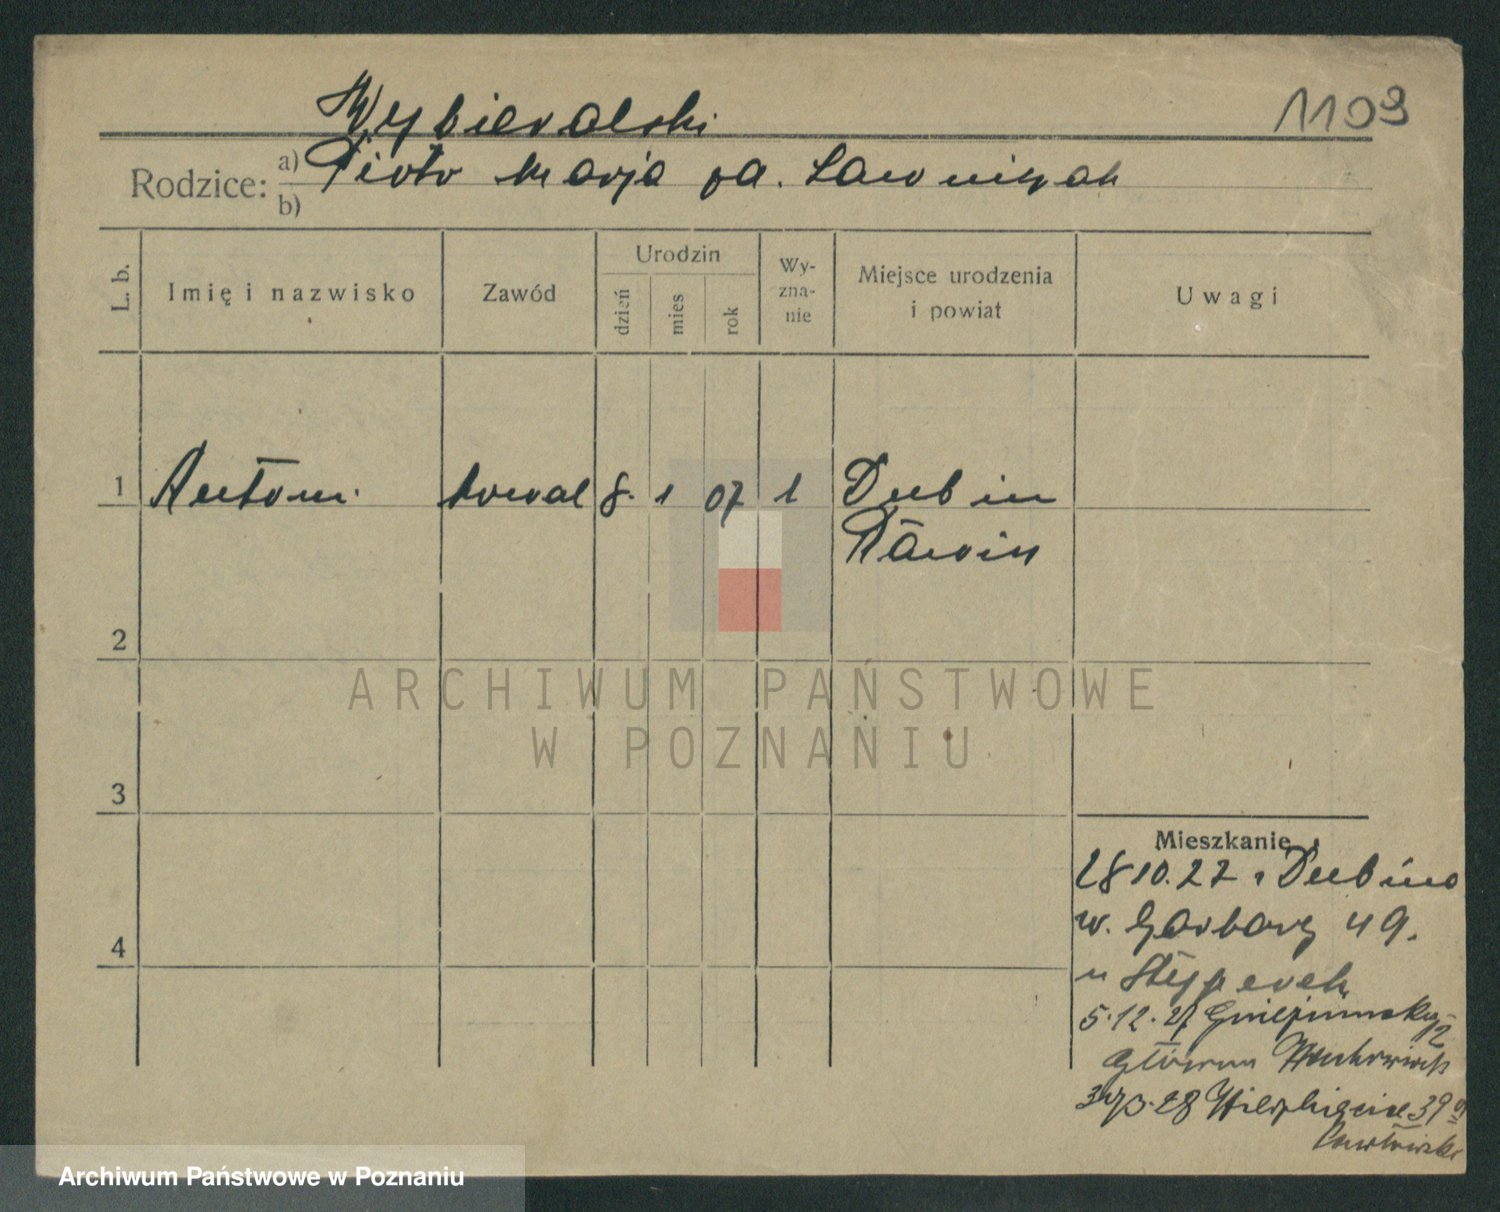 1109
Wybieralski
Rodzice: a) Piotr Marja za. Ławniczak
b)
L. b.
Imię i nazwisko
Zawód
Urodzin
dzień
mies
rok
Wy-
zna-
nie
Miejsce urodzenia
i powiat
Uwagi
1 Antoni kowal 8. 1 07 1 Dubin
Rawicz
2
3
4
Mieszkanie
28 10.27 z Dubina
w. Garbary 49.
u
5.12.27 Gnieźnieńska 2
Główna
28 Wierzbięcice 39
ARCHIWUM PAŃSTWOWE
W POZNANIU
Archiwum Państwowe w Poznaniu